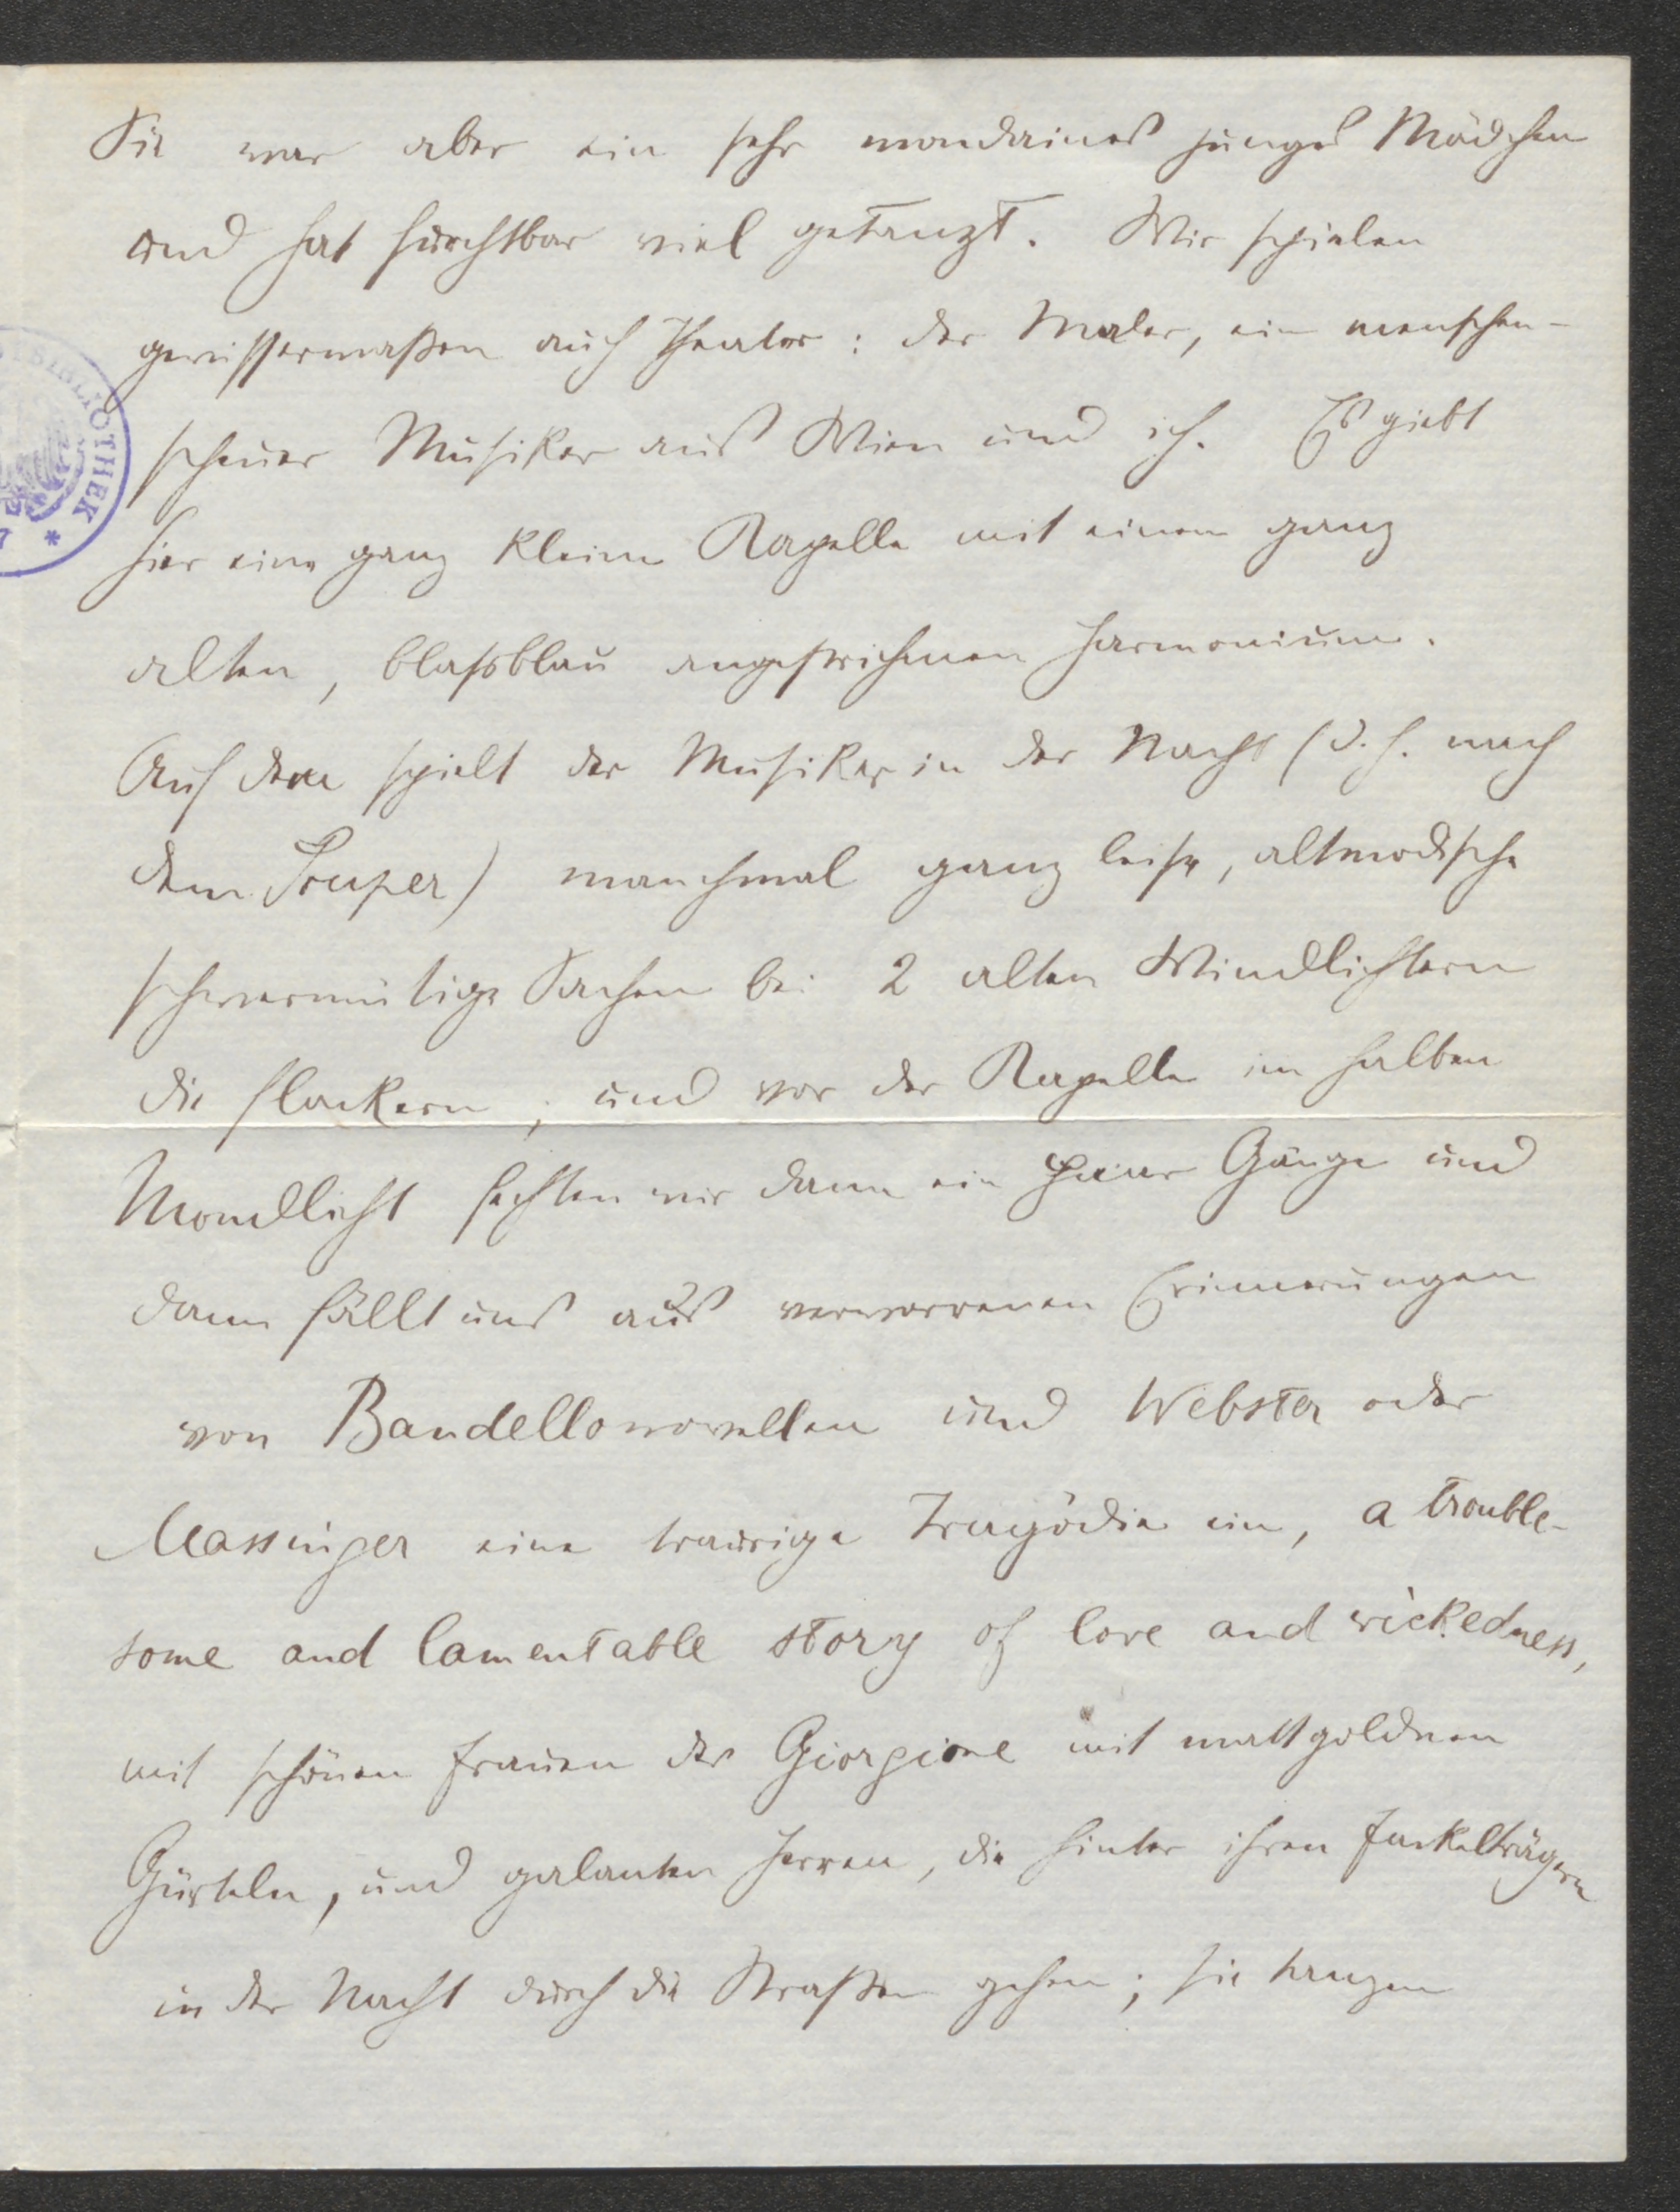 Sie war aber ein sehr mondaines junges Mädchen
und hat furchtbar viel getanzt. Wir spielen
gewissermaßen auch Theater: der Maler, ein menschen-
scheuer Musiker aus Wien und ich. Es giebt
hier eine ganz kleine Kapelle mit einem ganz
alten, blaßblau angestrichenen Harmonium.
Auf dem spielt der Musiker in der Nacht (d. h. nach
dem Souper) manchmal ganz leise, altmodische
schwermütige Sachen bei 2 alten Windlichtern
die flackern; und vor der Kapelle im halben
Mondlicht fechten wir dann ein paar Gänge und
dann fällt uns aus verworrenen Erinnerungen
von Bandellonovellen und Webster oder
Massinger eine traurige Tragödie ein, a trouble-
some and lamentable story of love and wickedness,
mit schönen Frauen des Giorgione mit mattgoldnen
Gürteln, und galanten Herren, die hinter ihren Fackelträgern
in der Nacht durch die Straßen gehen; sie tanzen
BIBLIOTHEK *
7